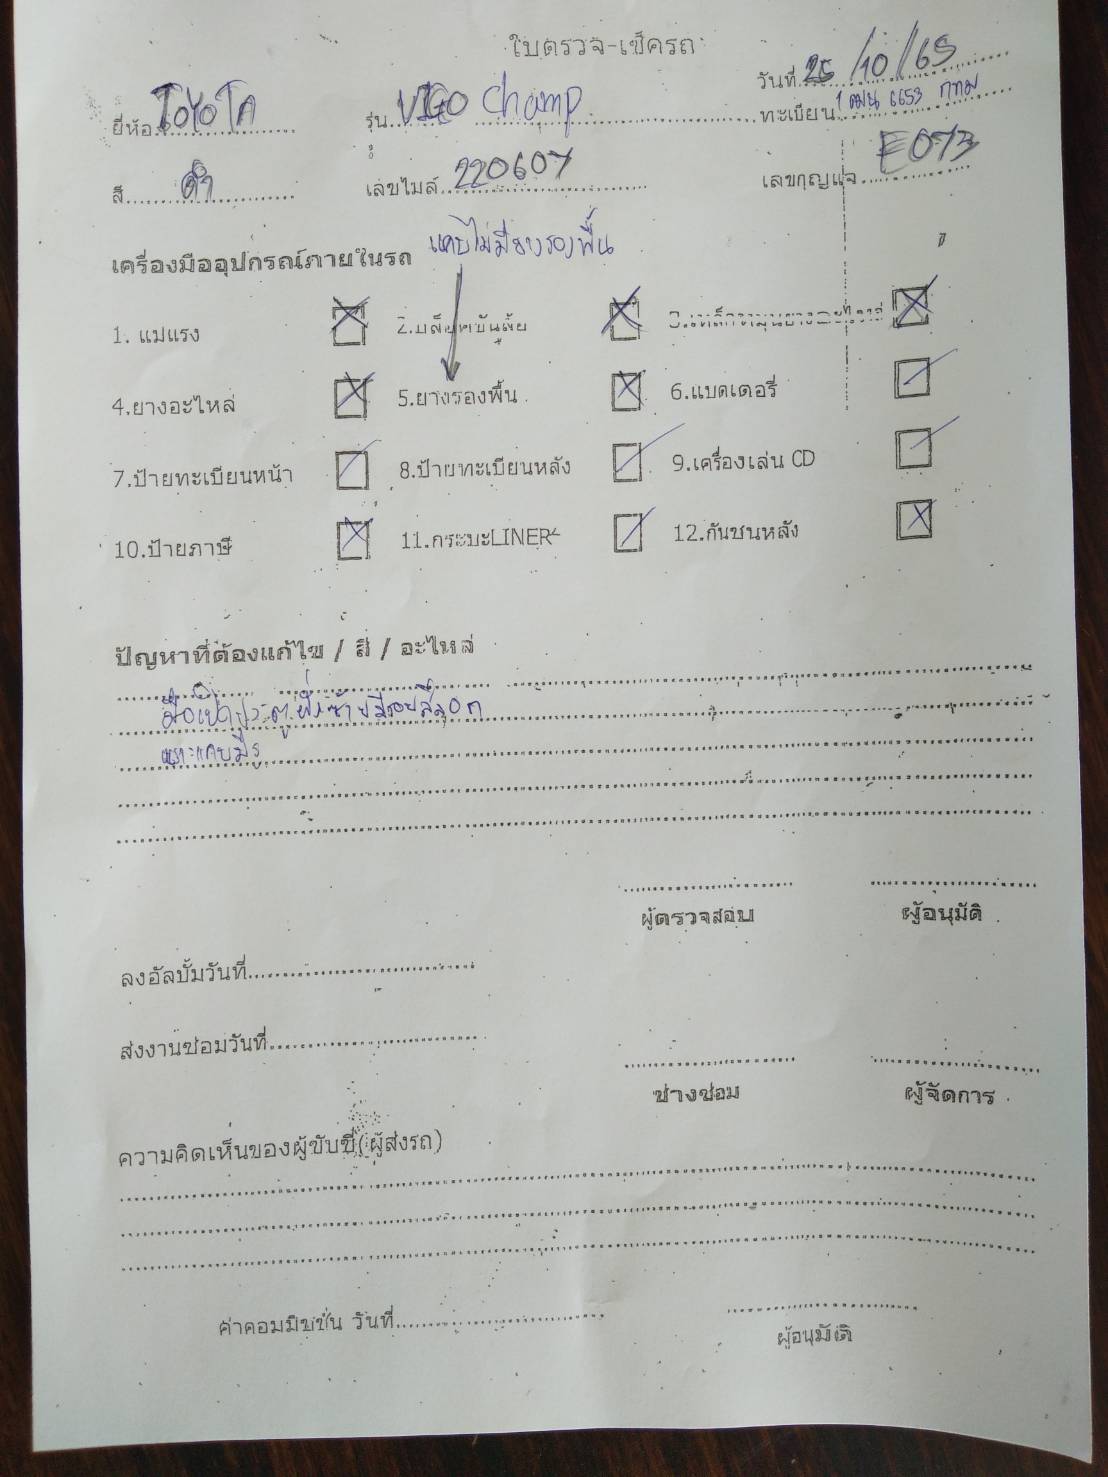 ใบตรวจ-เช็ครถ
วันที่ 25/10/65
ยี่ห้อ TOYOTA รุ่น VIGO champ ทะเบียน 6653 กทม
สี ดำ เลขไมล์ 220607 เลขกุญแจ E073
เครื่องมืออุปกรณ์ภายในรถ แคปไม่มียางรองพื้น
1. แม่แรง 2.บล๊อคขันล้อ
4.ยางอะไหล่ 5.ยางรองพื้น 6.แบตเตอรี่
7.ป้ายทะเบียนหน้า 8.ป้ายทะเบียนหลัง 9.เครื่องเล่น CD
10.ป้ายภาษี 11.กระบะLINER 12.กันชนหลัง
ปัญหาที่ต้องแก้ไข / สี / อะไหล่
มือเปิดประตูฝั่งซ้ายมีรอยสีลอก
เบาะแคบมีรู
ผู้ตรวจสอบ ผู้อนุมัติ
ลงอัลบั้มวันที่
ส่งงานซ่อมวันที่
ช่างซ่อม ผู้จัดการ
ความคิดเห็นของผู้ขับขี่(ผู้ส่งรถ)
ค่าคอมมิชชั่น วันที่
ผู้อนุมัติ